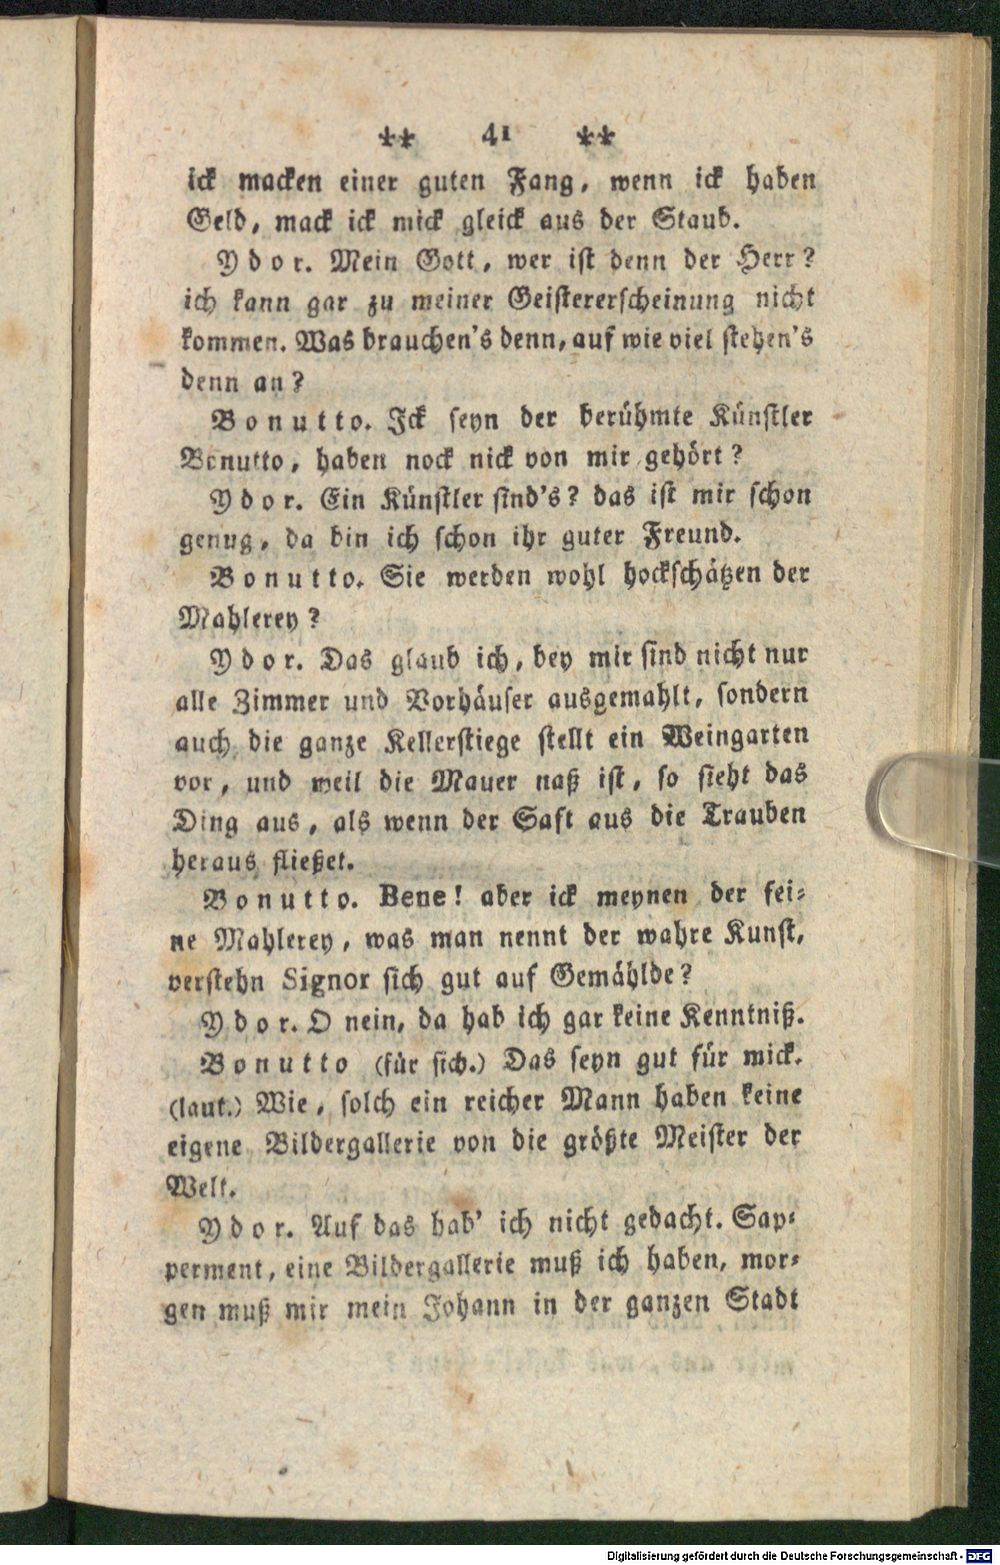 ** 41 **
ick macken einer guten Fang, wenn ick haben
Geld, mack ick mick gleick aus der Staub.
Ydor. Mein Gott, wer ist denn der Herr?
ich kann gar zu meiner Geistererscheinung nicht
kommen. Was brauchen's denn, auf wie viel stehen's
denn an?
Bonutto. Ick seyn der berühmte Künstler
Bonutto, haben nock nick von mir gehört?
Ydor. Ein Künstler sind's? das ist mir schon
genug, da bin ich schon ihr guter Freund.
Bonutto. Sie werden wohl hockschätzen der
Mahlerey?
Ydor. Das glaub ich, bey mir sind nicht nur
alle Zimmer und Vorhäuser ausgemahlt, sondern
auch die ganze Kellerstiege stellt ein Weingarten
vor, und weil die Mauer naß ist, so sieht das
Ding aus, als wenn der Saft aus die Trauben
heraus fließet.
Bonutto. Bene! aber ick meynen der fei-
ne Mahlerey, was man nennt der wahre Kunst,
verstehn Signor sich gut auf Gemählde?
Ydor. O nein, da hab ich gar keine Kenntniß.
Bonutto (für sich.) Das seyn gut für mick.
(laut.) Wie, solch ein reicher Mann haben keine
eigene Bildergallerie von die größte Meister der
Welt.
Ydor. Auf das hab' ich nicht gedacht. Sap-
perment, eine Bildergallerie muß ich haben, mor-
gen muß mir mein Johann in der ganzen Stadt
Digitalisierung gefördert durch die Deutsche Forschungsgemeinschaft - DFG